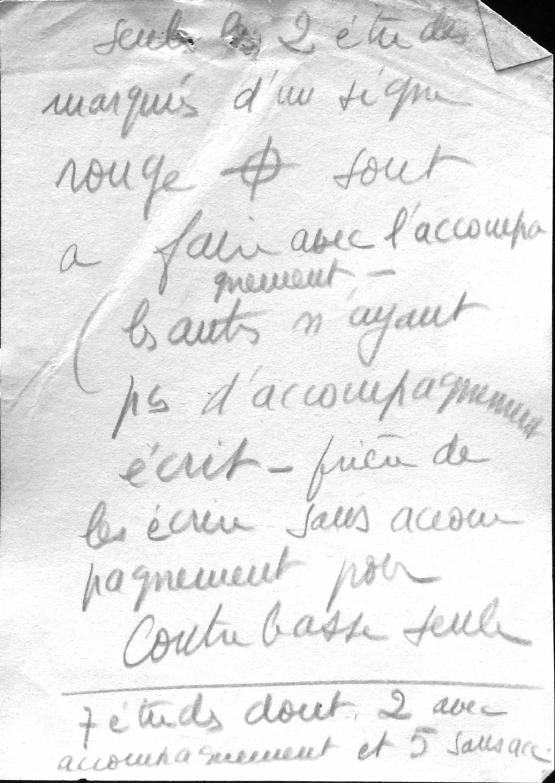 seules les 2 études
marqués d'un signe
rouge ϕ sont
a faire avec l'accompa
gnement –
les autres n'ayant
pas d'accompagnement
écrit – prière de
les écrire sans accom
pagnement pour
Contrebasse seule
7 études dont 2 avec
accompagnement et 5 sans acc.